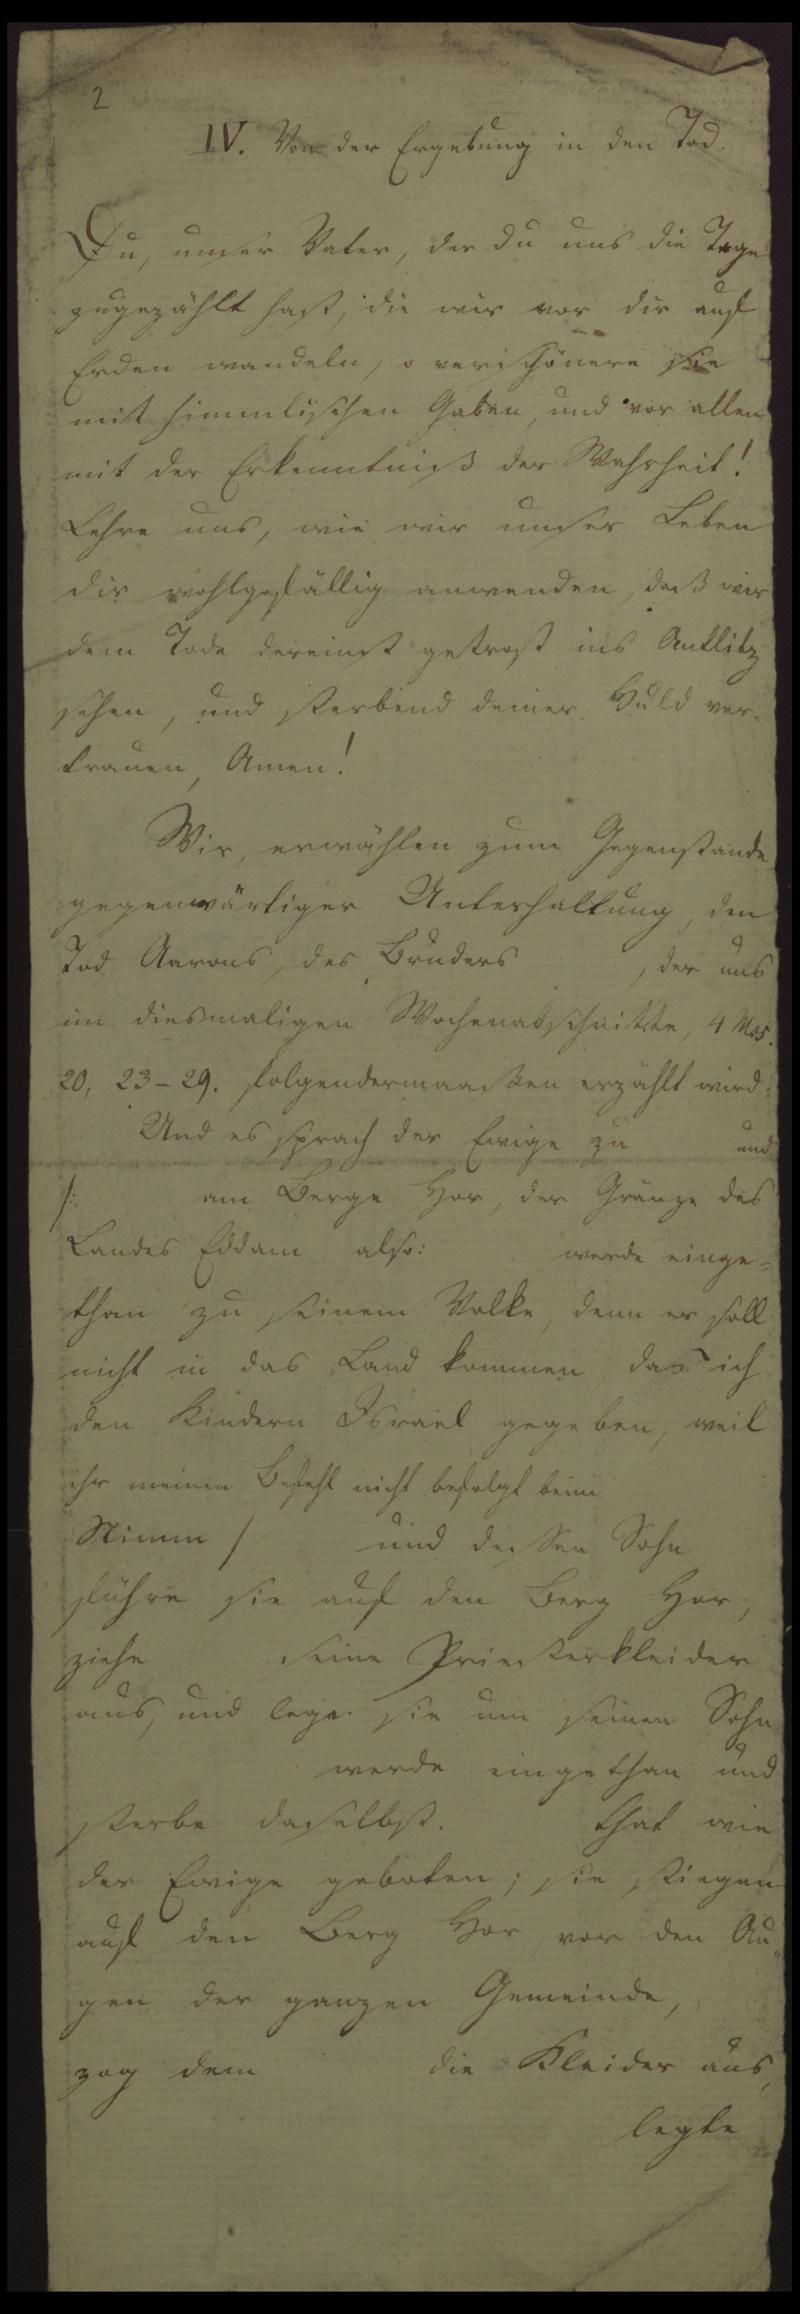 2
IV. Von der Ergebung in den Tod.
Du, unser Vater, der du uns die Tage
zugezählt hast, die wir vor dir auf
Erden wandeln, o verschönere sie
mit himmlischen Gaben, und vor allen
mit der Erkenntniß der Wahrheit!
Lehre uns, wie wir unser Leben
dir wohlgefällig anwenden, daß wir
dem Tode dereinst getrost ins Antlitz
sehen, und sterbend deiner Huld ver-
trauen, Amen!
Wir, erwählen zum Gegenstande
gegenwärtiger Unterhaltung, den
Tod Aarons, des Bruders , der uns
im diesmaligen Wochenabschnitte, 4 Mos.
20, 23-29. folgendermaaßen erzählt wird:
Und es sprach der Ewige zu und
/: am Berge Hor, der Gränze des
Landes Eddam also: werde einge=
than zu seinem Volke, denn er soll
nicht in das Land kommen, das ich
den Kindern Israel gegeben, weil
ihr meinen Befehl nicht befolgt beim
Nimm / und dessen Sohn
führe sie auf den Berg Hor,
ziehe seine Priesterkleider
aus, und lege sie um seinen Sohn
werde eingethan und
sterbe daselbst. that wie
der Ewige geboten; sie stiegen
auf den Berg Hor vor den Au„
gen der ganzen Gemeinde,
zog dem die Kleider aus,
legte